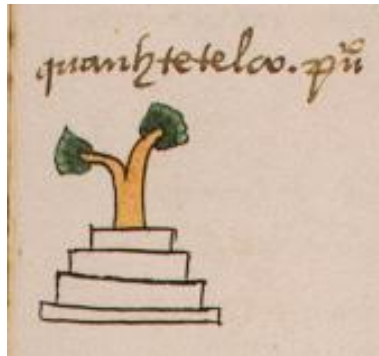 quauhtetelco. pūo